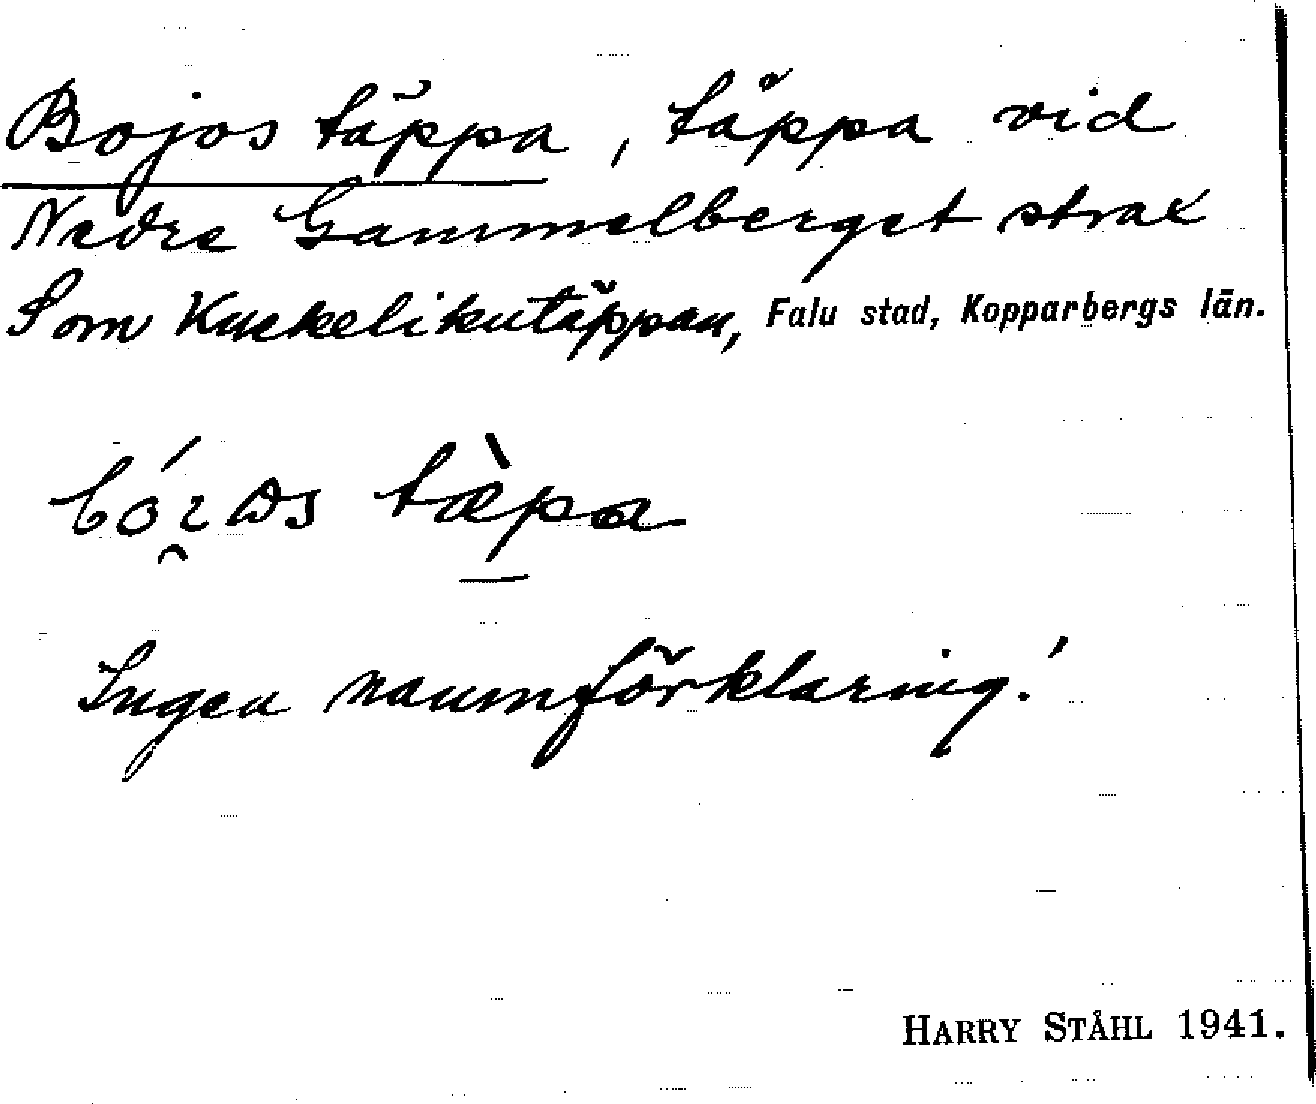 Bojos täppa, täppa vid
Nedre Gammelberget strax
Som Kuckelikutäppan, Falu stad, Kopparbergs län.
tæ̀pa
Ingen namnförklaring!
HARRY STÅHL 1941.